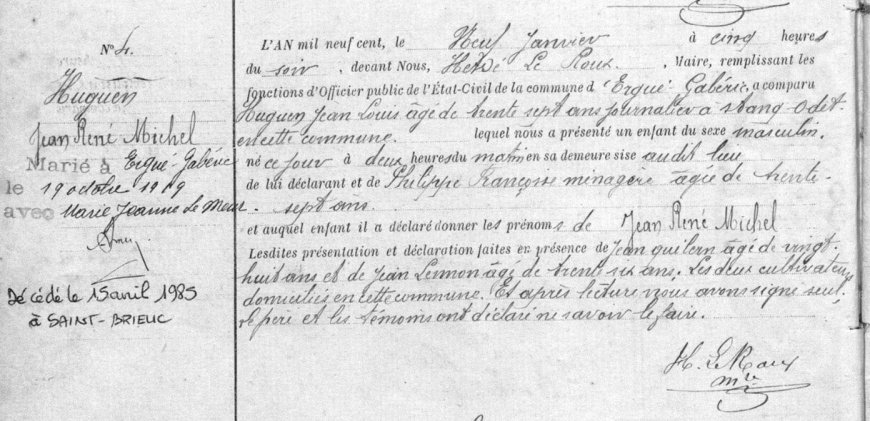 N° 4.
Huguen
Jean René Michel
Marié à Ergué-Gabéric
le 19 octobre 1919
avec Marie Jeanne Le Meur.
Décédé le 15 avril 1985
à SAINT-BRIEUC
L'AN mil neuf cent, le Neuf Janvier à cinq heures
du soir, devant Nous, Hervé Le Roux, Maire, remplissant les
fonctions d'Officier public de l'État-Civil de la commune d'Ergué-Gabéric, a comparu
Huguen Jean Louis âgé de trente sept ans journalier à Stang-Odet
en cette commune. lequel nous a présenté un enfant du sexe masculin.
né ce jour à deux heures du matin en sa demeure sise audit lieu
de lui déclarant et de Philippe Françoise ménagère âgée de trente-
sept ans.
et auquel enfant il a déclaré donner les prénoms de Jean René Michel
Lesdites présentation et déclaration faites en présence de Jean quilern âgé de vingt
huit ans et de Jean Lennon âgé de trente six ans. Les deux cultivateurs
domiciliés en cette commune. Et après lecture nous avons signé seul,
le père et les témoins ont déclaré ne savoir le faire.
H. Le Roux
mre